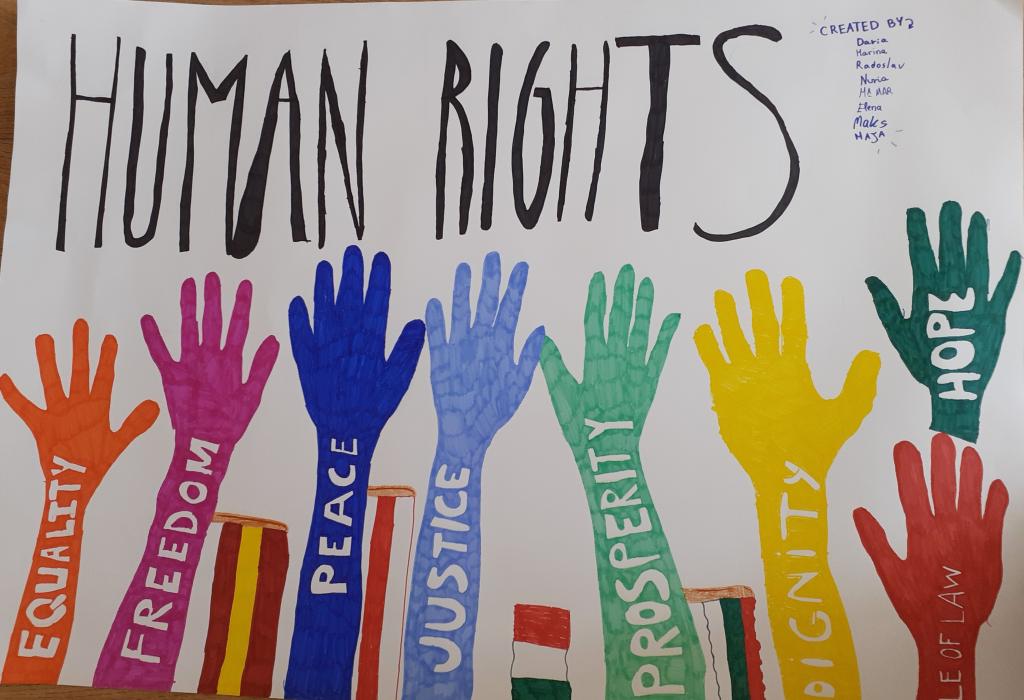 HUMAN RIGHTS
CREATED BY:
Daria
Marina
Radoslav
Nuria
Elena
Maks
MAJA
EQUALITY
FREEDOM
PEACE
JUSTICE
PROSPERITY
DiGNiTY
HOPE
E OF LAW